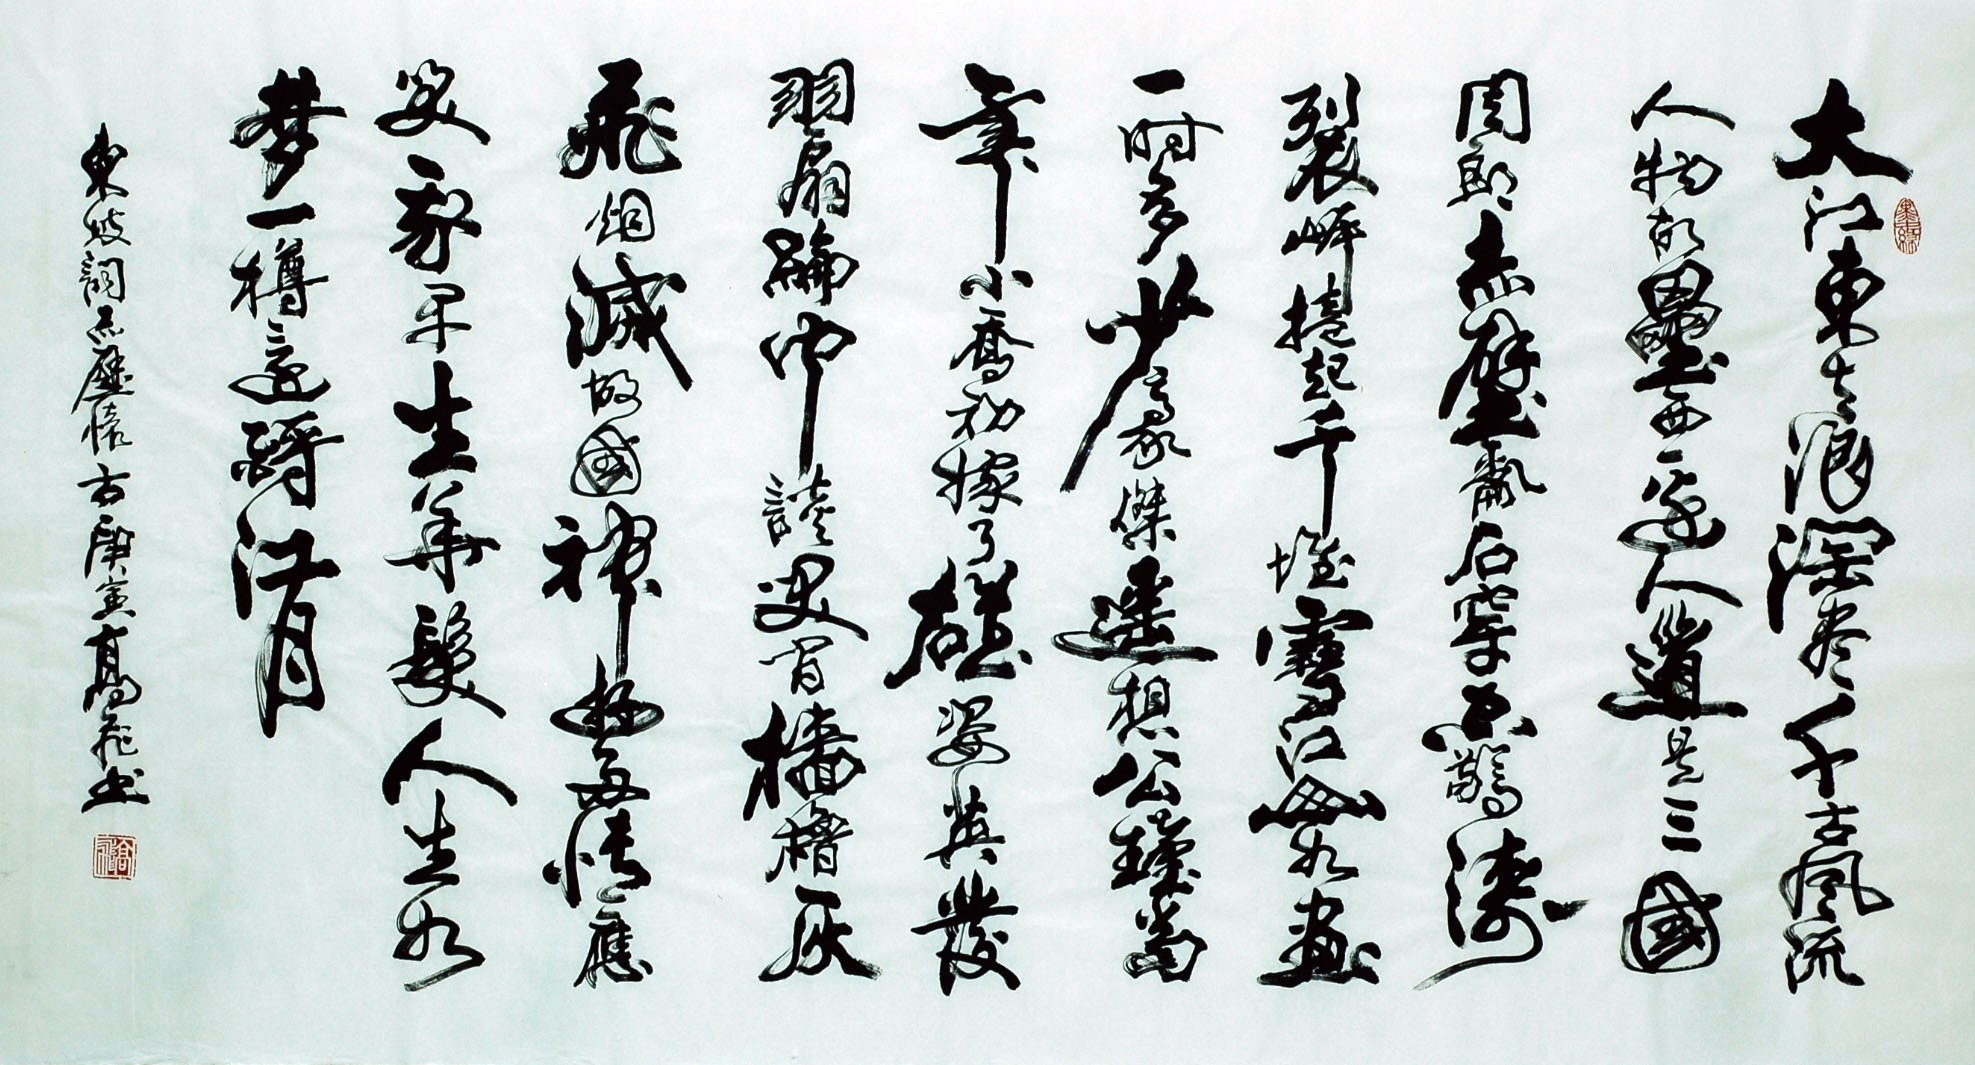 大江東去浪淘尽千古風流
人物故壘西邊人道是三國
周郎赤壁亂石穿空驚濤
裂岸捲起千堆雪江山如畫
一時多少豪傑遥想公瑾當
年小喬初嫁了雄姿英發
羽扇綸巾談笑間檣櫓灰
飛烟滅故國神遊多情應
笑我早生華髮人生如
梦一樽還酹江月
東坡詞赤壁懷古庚寅高飛书